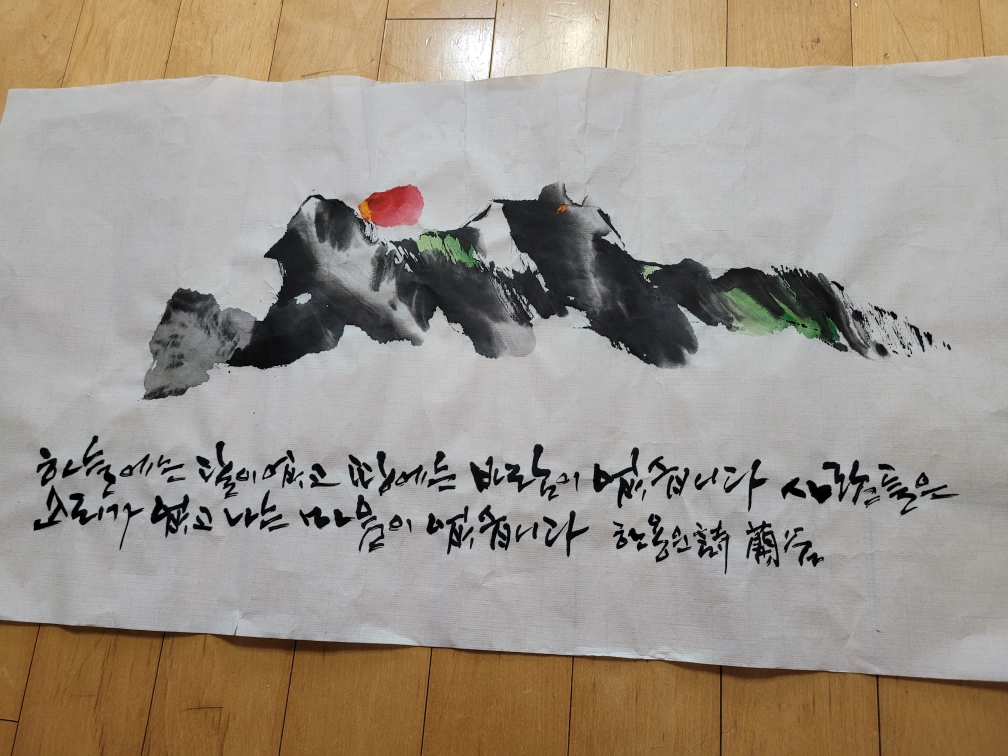 하늘에는 달이 없고 땅에는 바람이 없습니다 사람들은
소리가 없고 나는 마음이 없습니다 한용운 詩 蘭谷